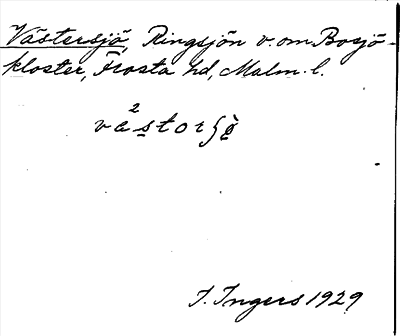 Västersjö, Ringsjön v. om Bosjö-
kloster, Frosta hd, Malm. l.
I. Ingers 1929